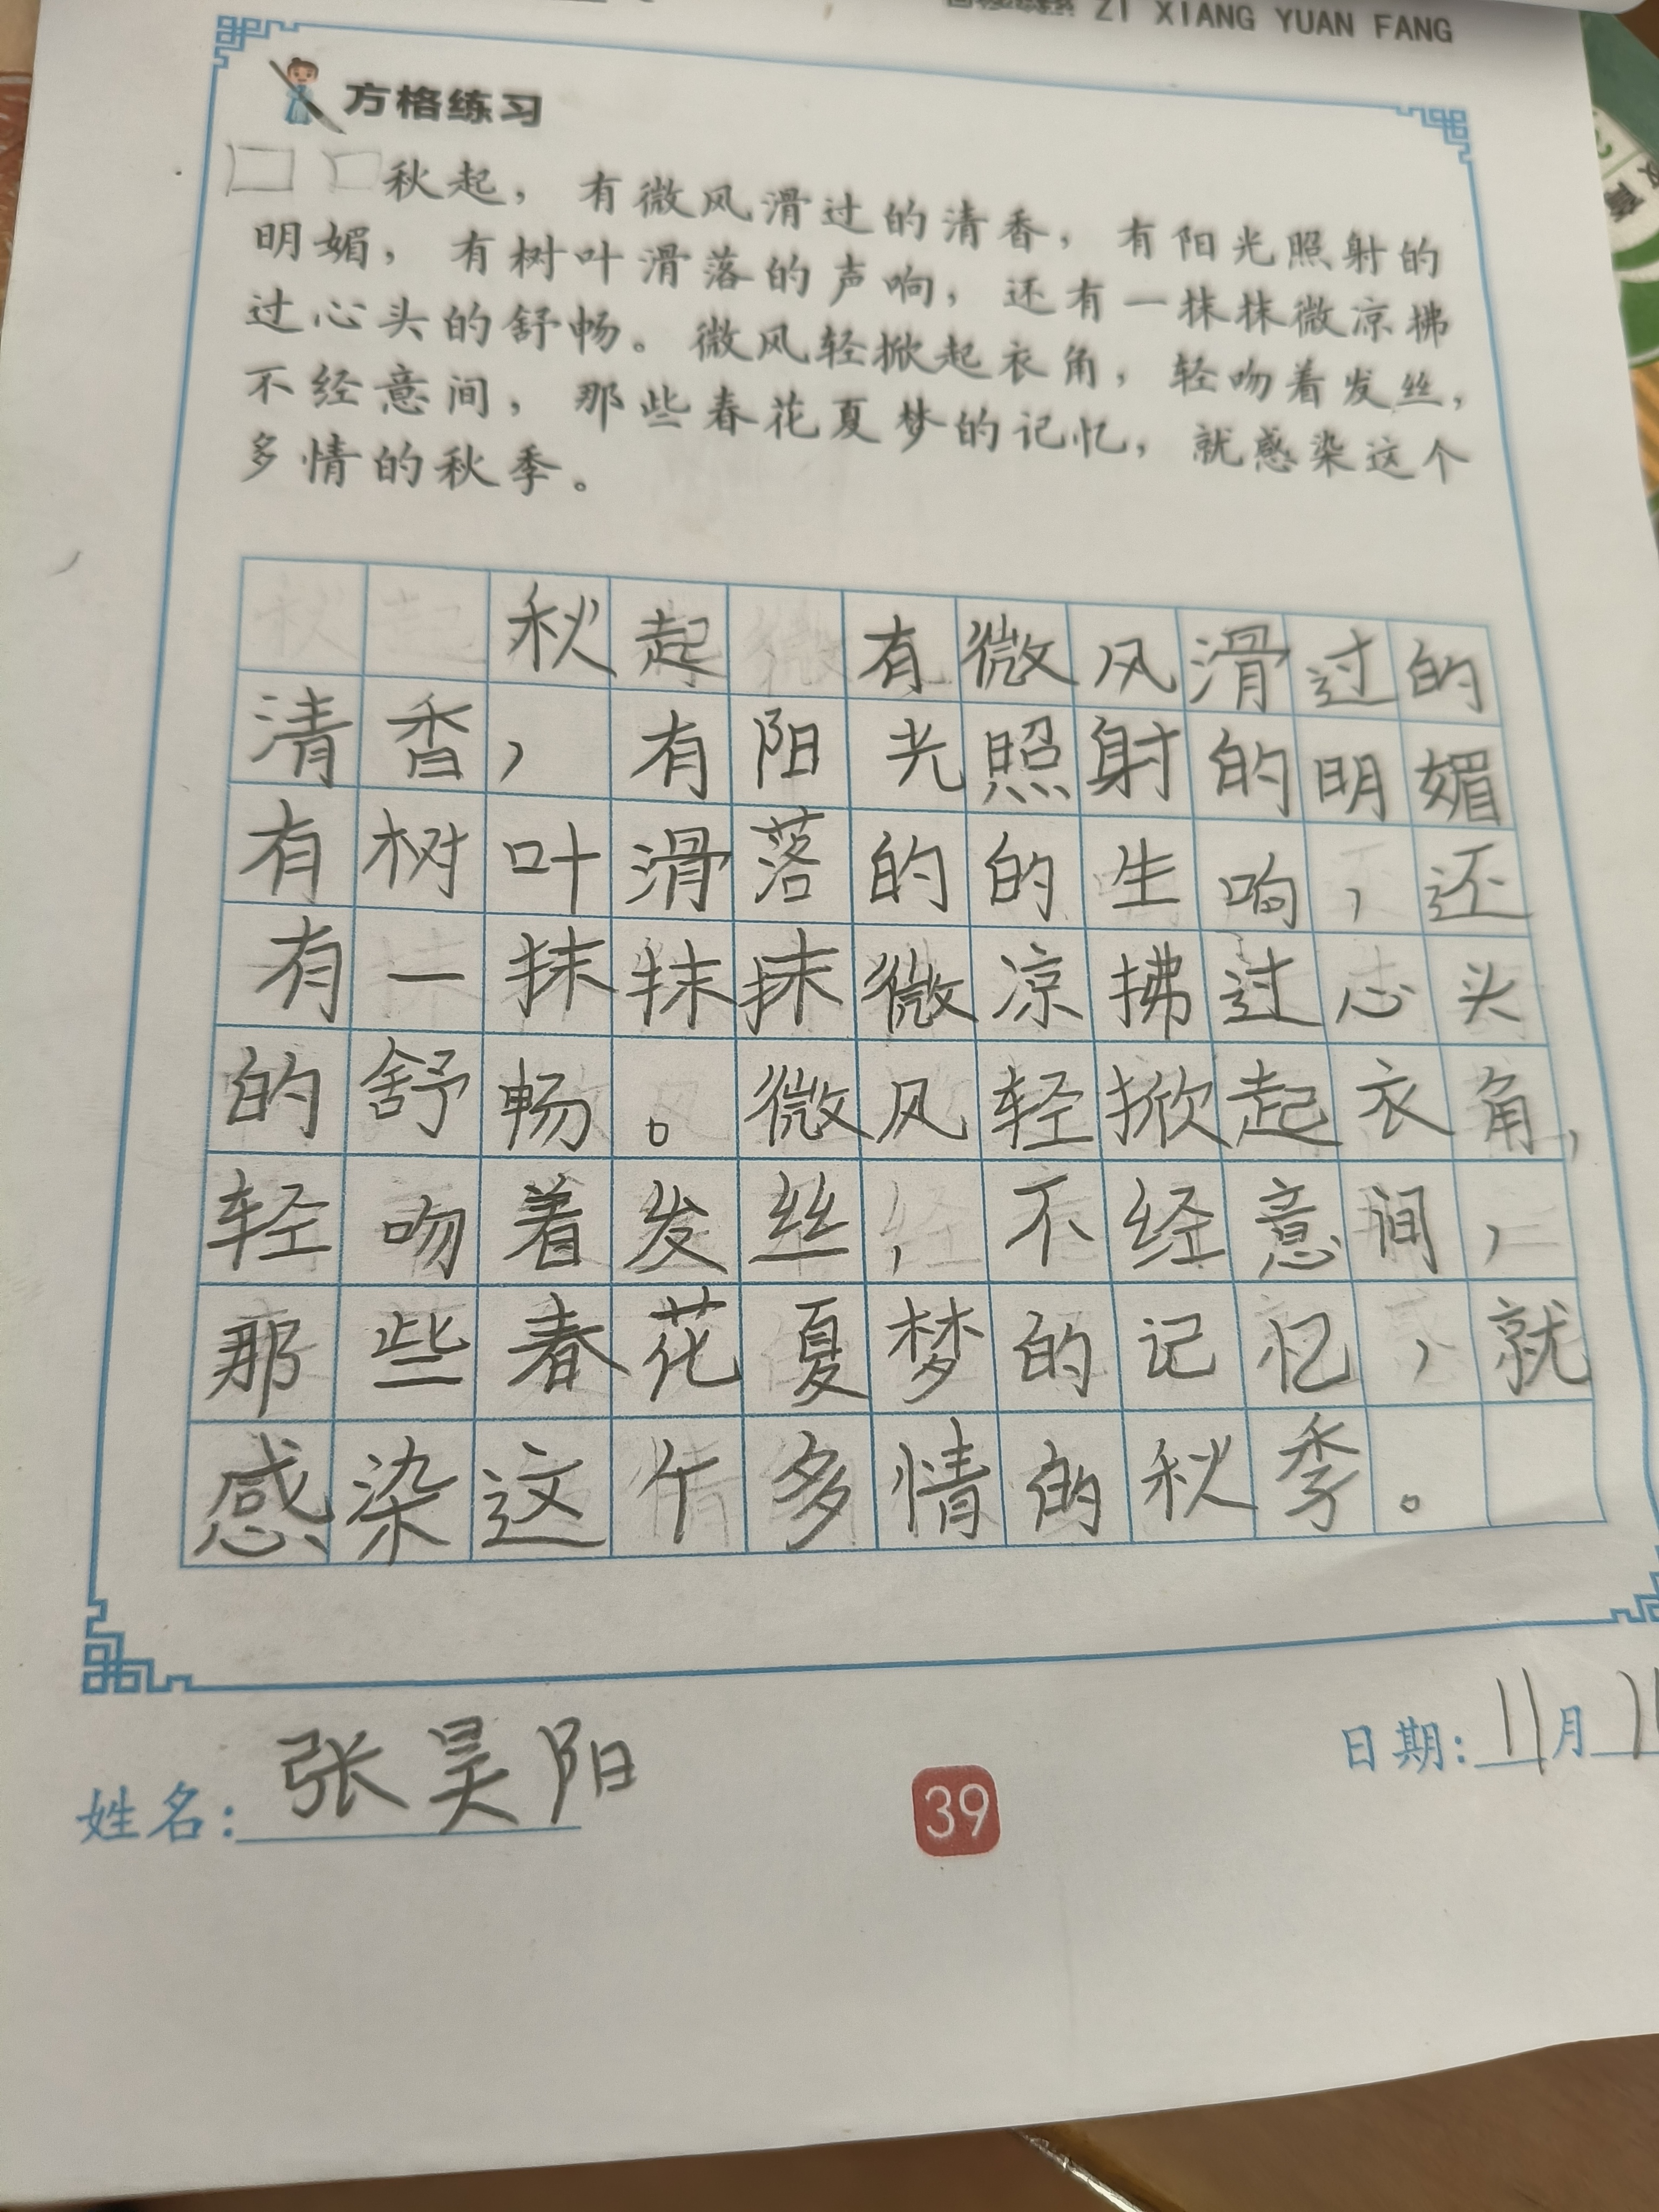 ZI XIANG YUAN FANG
方格练习
秋起，有微风滑过的清香，有阳光照射的
明媚，有树叶滑落的声响，还有一抹抹微凉拂
过心头的舒畅。微风轻掀起衣角，轻吻着发丝，
不经意间，那些春花夏梦的记忆，就感染这个
多情的秋季。
秋起 有微风滑过的
清香，有阳光照射的明媚
有树叶滑落的的生响，还
有一抹抹抹微凉拂过心头
的舒畅。微风轻掀起衣角，
轻吻着发丝，不经意间，
那些春花夏梦的记忆，就
感染这个多情的秋季。
姓名：张昊阳
39
日期：11月